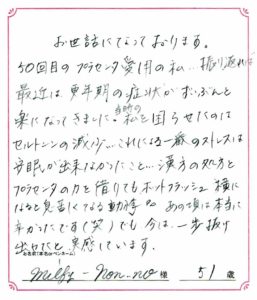 お世話になっております。
50回目のプラセンタ愛用の私…振り返れば
最近は更年期の症状がずいぶんと
楽になってきました。当時の私を困らせたのは
セルトンの減少…これによる一番のストレスは
安眠が出来なかったこと…漢方の処方と
プラセンタの力を借りてもホットフラッシュ 横に
なると息苦しくなる動悸 あの頃は本当に
辛かったです(笑)でも今は、一歩抜け
出れたと実感しています。
お名前(本名orペンネーム)
Melfy-non-no 様 51歳